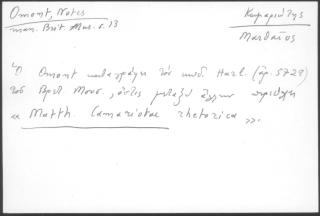 Omont, Notes
man. Brit. Mus. s. 13
Καμαριώτης
Ματθαῖος
Ὁ Omont καταγράφει τὸν κωδ. Harl. (ἀρ. 5727)
τοῦ Βρετ. Μουσ., ὅστις μεταξὺ ἄλλων περιέχει
« Matth. Camariotae rhetorica ».